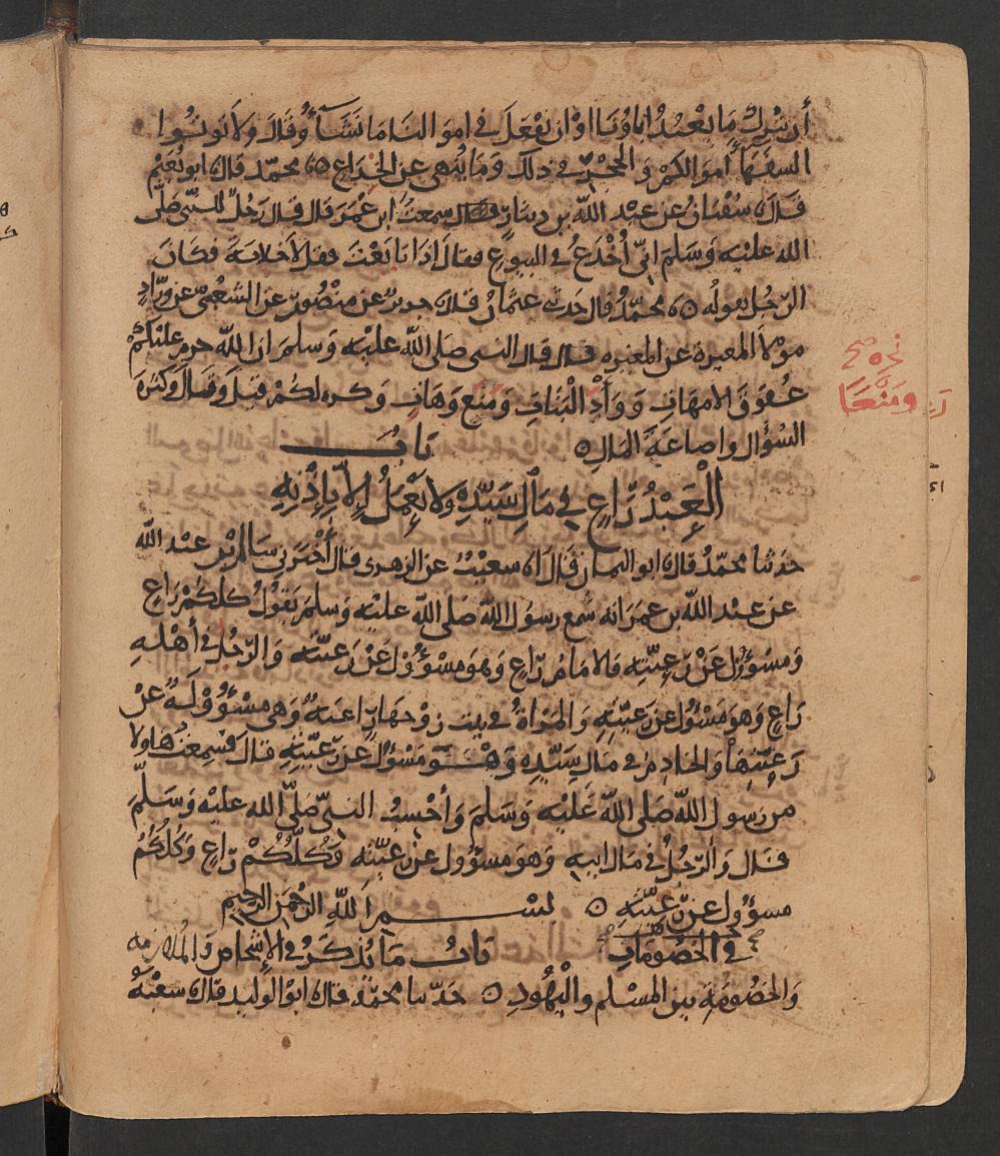 أن نترك ما يعبد اباونا او ان نفعل في اموالنا ما نشآء وقال ولا توتوا
السفهآ اموالكم والحجر في ذلك وما ينهى عن الخداع ۞ محمد قال ابو نعيم
قال سفيان عن عبد الله بن دينار قال سمعت ابن عمر قال قال رجل للنبي صلى
الله عليه وسلم اني أخدع في البيوع فقال إذا بايعت فقل لا خلابة فكان
الرجل يقوله ۞ محمد قال حدثنا عثمان قال جرير عن منصور عن الشعبي عن ورّاد
مولا المغيرة عن المغيره قال قال النبي صلى الله عليه وسلم ان الله حرم عليكم
عقوق الامهات ووأد البنات ومنع وهات وكره لكم قيل وقال وكثرة
السؤال واضاعة المال ۞ باب
العبد راع في مال سيده ولا يعمل إلا بإذنه
حدثنا محمد قال ابو اليمان قال شعيب عن الزهري قال أخبرني سالم بن عبد الله
عن عبد الله بن عمر انه سمع رسول الله صلى الله عليه وسلم يقول كلكم راع
ومسؤول عن رعيته فالامام راع وهو مسؤول عن رعيته والرجل في أهله
راع وهو مسؤل عن رعيته والمرأة في بيت زوجها راعية وهي مسؤولة عن
رعيتها والخادم في مال سيده وهو مسؤل عن رعيته قال فسمعت هاولا
من رسول الله صلى الله عليه وسلم وأحسب النبي صلى الله عليه وسلم
قال والرجل في مال ابيه وهو مسؤول عن رعيته وكلكم راع وكلكم
مسؤول عن رعيته ۞ بسم الله الرحمن الرحيم
في الخصومات باب ما يذكر في الإشخاص والملازمه
والخصومة بين المسلم واليهود ۞ حدثنا محمد قال ابو الوليد قال شعبة
ومنعا